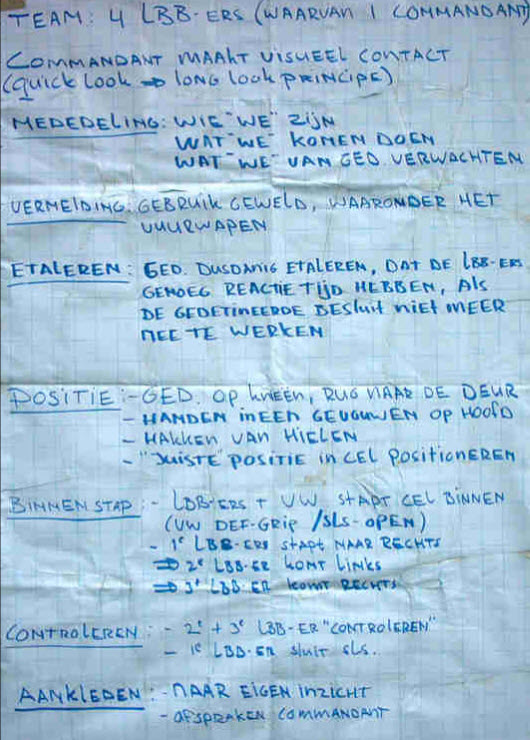 TEAM: 4 LBB-ERS (WAARVAN 1 COMMANDANT)
COMMANDANT MAAKT VISUEEL CONTACT
(QUICK LOOK ⇒ LONG LOOK PRINCIPE)
MEDEDELING: WIE "WE" ZIJN
WAT "WE" KOMEN DOEN
WAT "WE" VAN GED. VERWACHTEN
VERMELDING: GEBRUIK GEWELD, WAARONDER HET
VUURWAPEN
ETALEREN: GED. DUSDANIG ETALEREN, DAT DE LBB-ERS
GENOEG REACTIE TIJD HEBBEN, ALS
DE GEDETINEERDE BESLUIT NIET MEER
MEE TE WERKEN
POSITIE: - GED. OP KNIEËN, RUG NAAR DE DEUR
- HANDEN INEEN GEVOUWEN OP HOOFD
- HAKKEN VAN HIELEN
- "JUISTE" POSITIE IN CEL POSITIONEREN
BINNENSTAP: - LBB-ERS + VW STAPT CEL BINNEN
(VW DEF-GRIP / SLS-OPEN)
- 1e LBB-ERS STAPT NAAR RECHTS
⇒ 2e LBB-ER KOMT LINKS
⇒ 3e LBB-ER KOMT RECHTS
CONTROLEREN: - 2e + 3e LBB-ER "CONTROLEREN"
- 1e LBB-ER SLUIT SLS.
AANKLEDEN: - NAAR EIGEN INZICHT
- AFSPRAKEN COMMANDANT